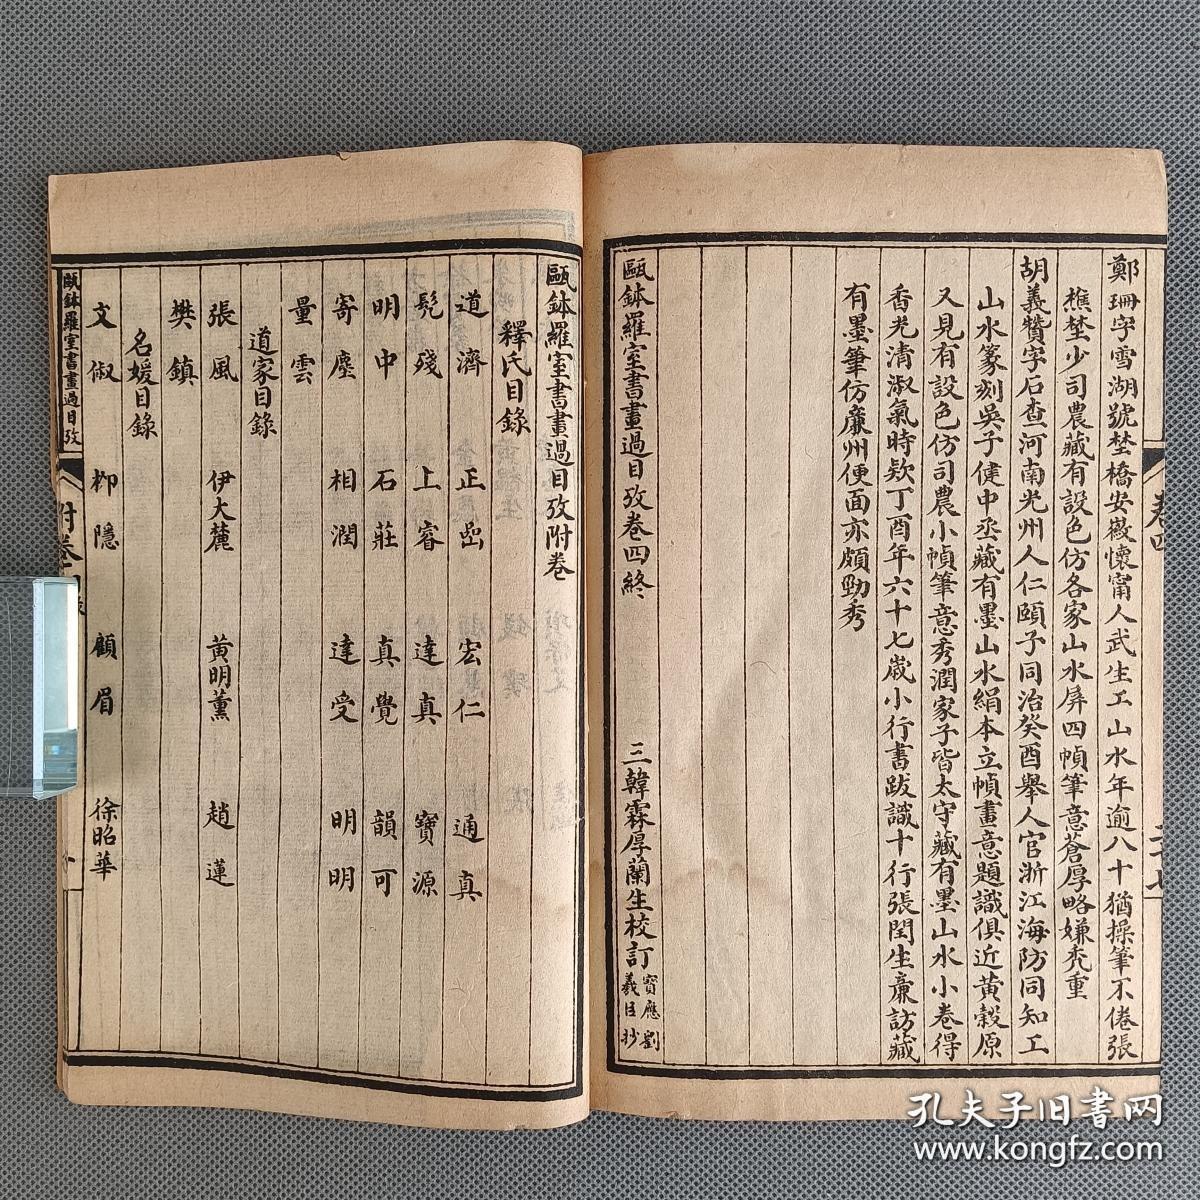 鄭珊字雪湖號埜橋安徽懷甯人武生工山水年逾八十猶操筆不倦張
樵埜少司農藏有設色仿各家山水屏四幀筆意蒼厚略嫌禿重
胡義贊字石查河南光州人仁頤子同治癸酉舉人官浙江海防同知工
山水篆刻吳子健中丞藏有墨山水絹本立幀畫意題識俱近黃穀原
又見有設色仿司農小幀筆意秀潤家子皆太守藏有墨山水小卷得
香光清淑氣時欵丁酉年六十七歲小行書跋識十行張閏生廉訪藏
有墨筆仿廉州便面亦頗勁秀
甌鉢羅室書畫過目攷卷四終
三韓霖厚蘭生校訂
寶應劉
羲臣抄
卷四
二十七
甌鉢羅室書畫過目攷附卷
釋氏目錄
道濟 正嵒 宏仁 通真
髡殘 上睿 達真 寶源
明中 石莊 真覺 韻可
寄塵 相潤 達受 明明
量雲
道家目錄
張風 伊大麓 黃明薰 趙蓮
樊鎮
名媛目錄
文俶 柳隱 顧眉 徐昭華
甌鉢羅室書畫過目攷
附卷目錄
孔夫子旧书网
www.kongfz.com